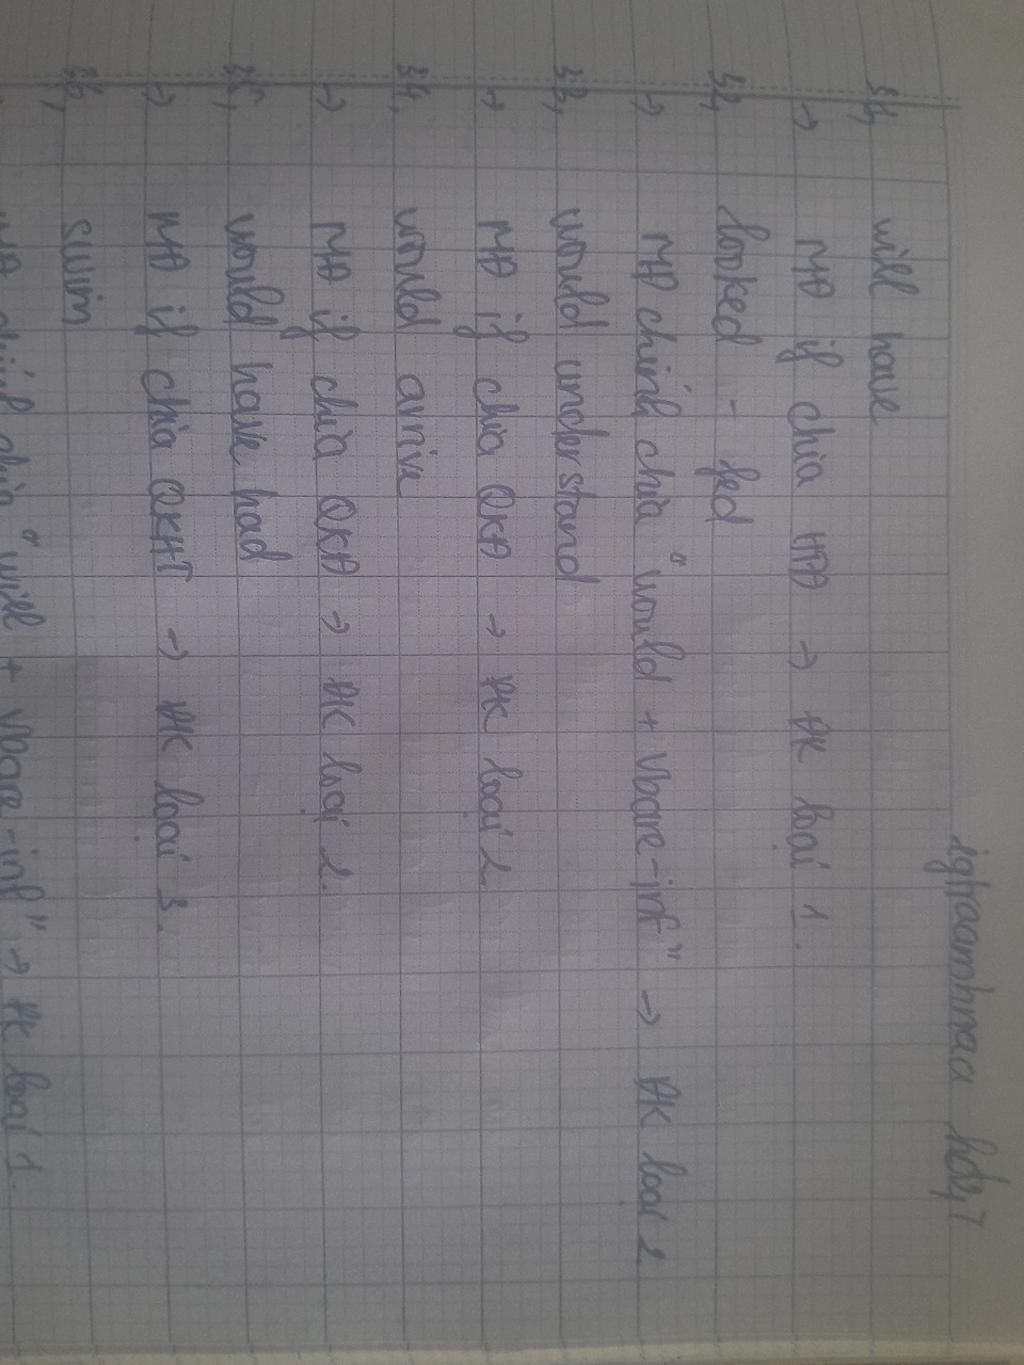 igtraamhnaa hds,7
51, will have
→ MĐ if chia HTĐ → ĐK loại 1.
52, looked - fed
→ MĐ chính chia "would + Vbare-inf" → ĐK loại 2
53, would understand
→ MĐ if chia QKĐ → ĐK loại 2
54, would arrive
→ MĐ if chia QKĐ → ĐK loại 2.
55, would have had
→ MĐ if chia QKHT → ĐK loại 3.
56, swim
MĐ chính chia "will + Vbare-inf" → ĐK loại 1.